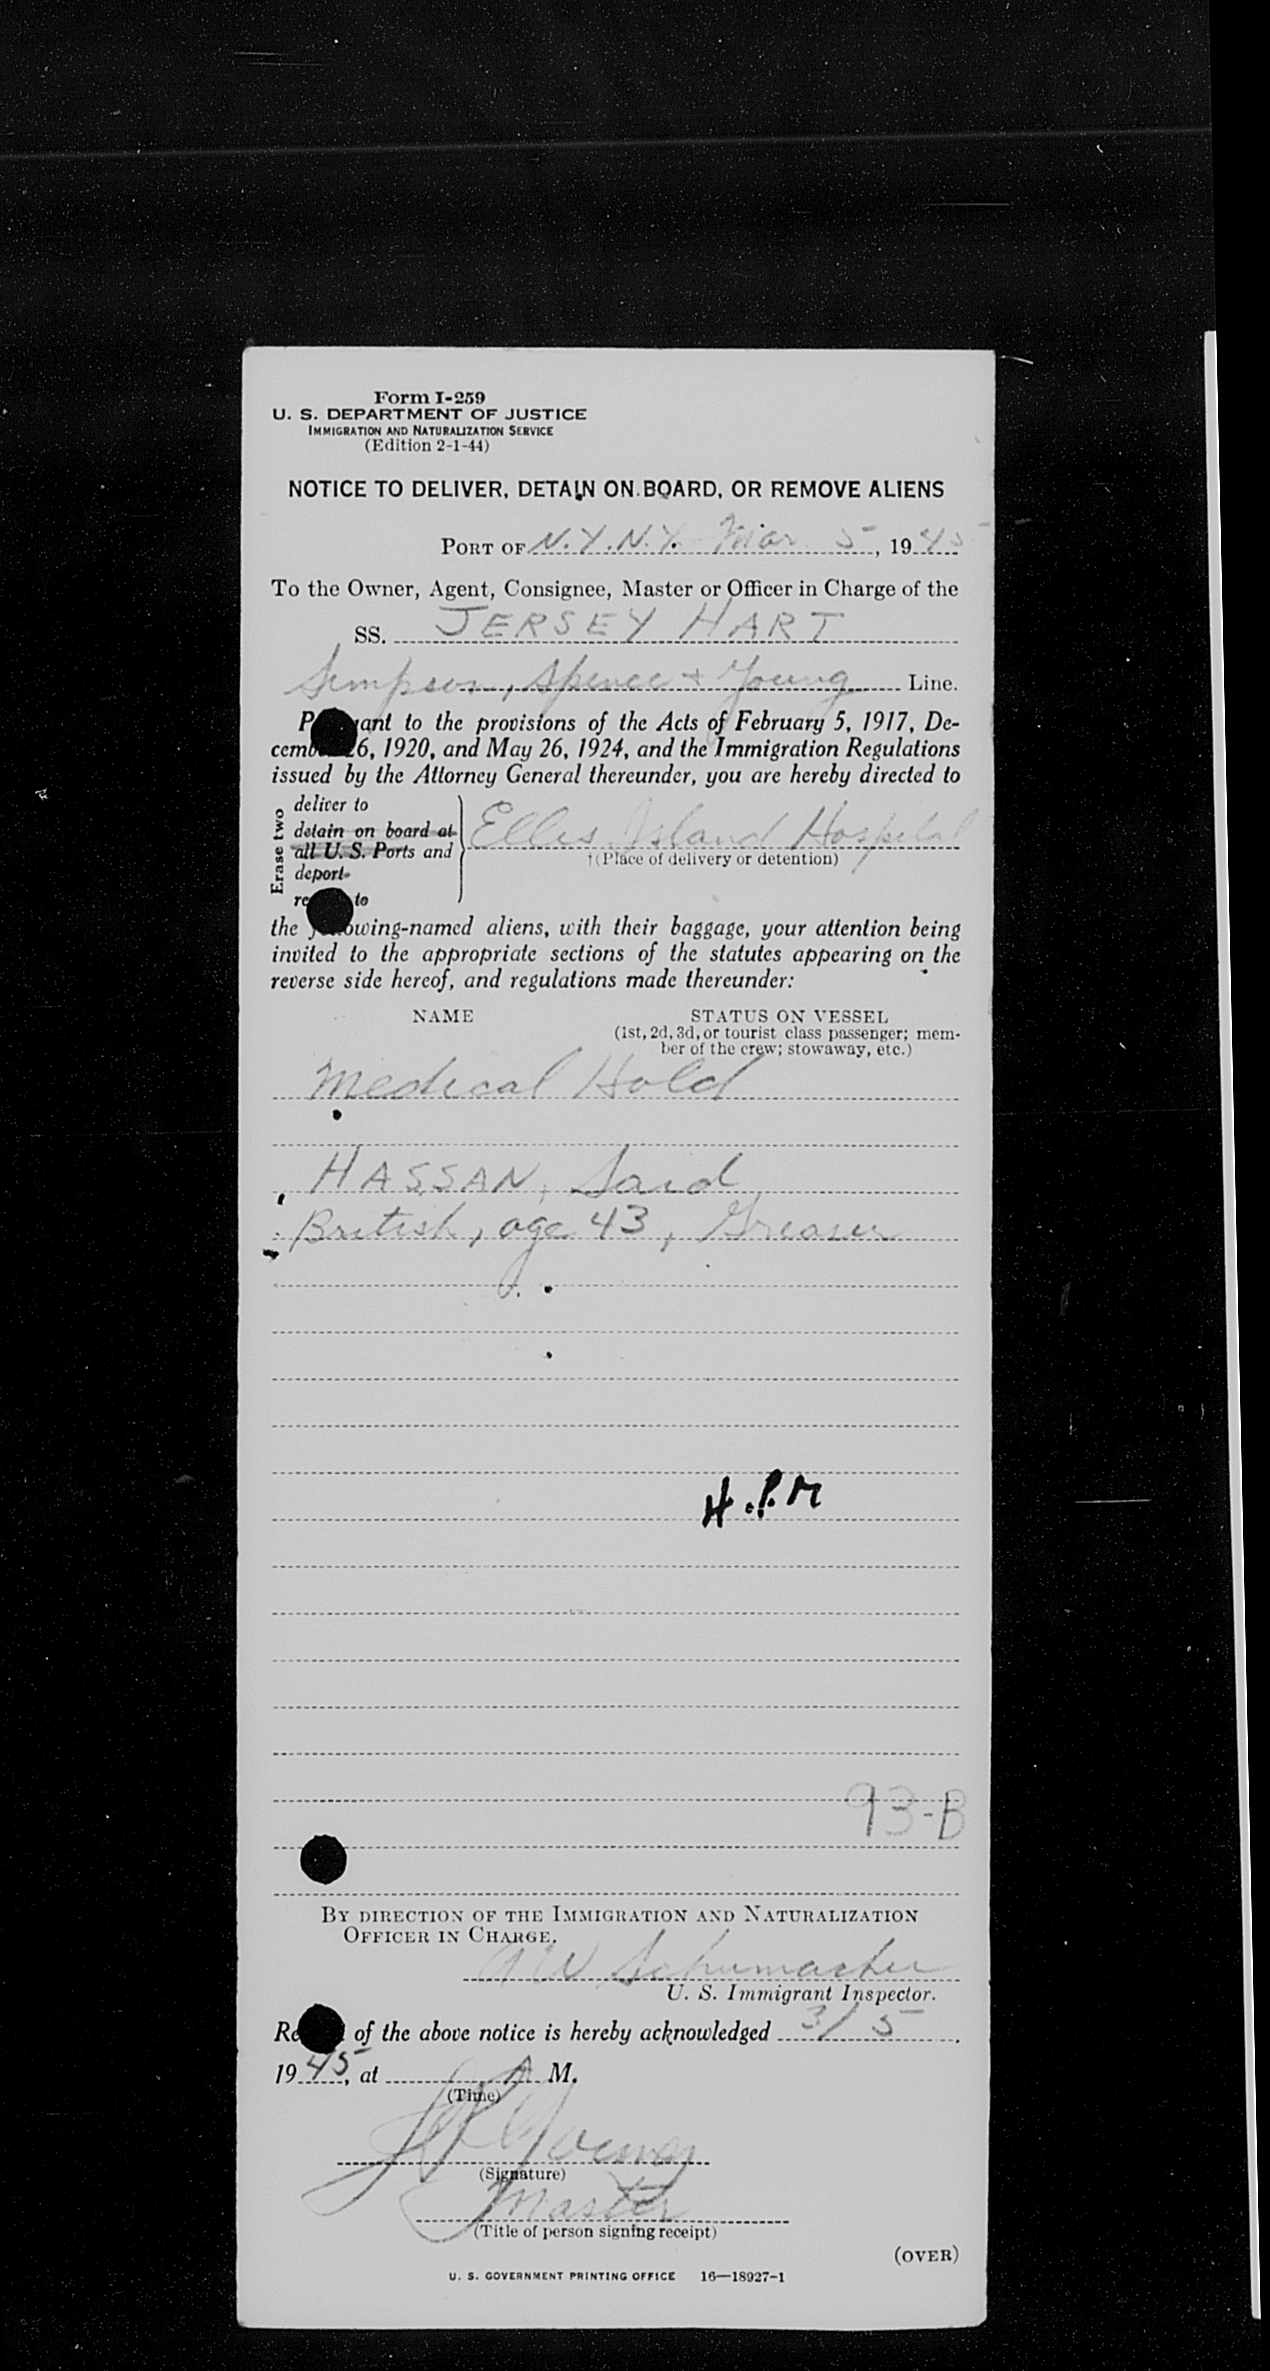 Form I-259
U. S. DEPARTMENT OF JUSTICE
IMMIGRATION AND NATURALIZATION SERVICE
(Edition 2-1-44)
NOTICE TO DELIVER, DETAIN ON BOARD, OR REMOVE ALIENS
PORT OF N.Y.N.Y. Mar 5, 1945
To the Owner, Agent, Consignee, Master or Officer in Charge of the
SS. JERSEY HART
Simpson, Spence + Young Line.
Pursuant to the provisions of the Acts of February 5, 1917, De-
cember 26, 1920, and May 26, 1924, and the Immigration Regulations
issued by the Attorney General thereunder, you are hereby directed to
Erase two
deliver to
detain on board at
all U. S. Ports and
deport
to
Ellis Island Hospital
†(Place of delivery or detention)
the following-named aliens, with their baggage, your attention being
invited to the appropriate sections of the statutes appearing on the
reverse side hereof, and regulations made thereunder:
NAME STATUS ON VESSEL
(1st, 2d, 3d, or tourist class passenger; mem-
ber of the crew; stowaway, etc.)
Medical Hold
HASSAN, Said
British, age 43, Greaser
H.P.M
93-B
BY DIRECTION OF THE IMMIGRATION AND NATURALIZATION
OFFICER IN CHARGE.
Schumacher
U. S. Immigrant Inspector.
Receipt of the above notice is hereby acknowledged 3/5,
1945, at A M.
(Time)
Young
(Signature)
Master
(Title of person signing receipt)
(OVER)
U. S. GOVERNMENT PRINTING OFFICE 16—18927-1